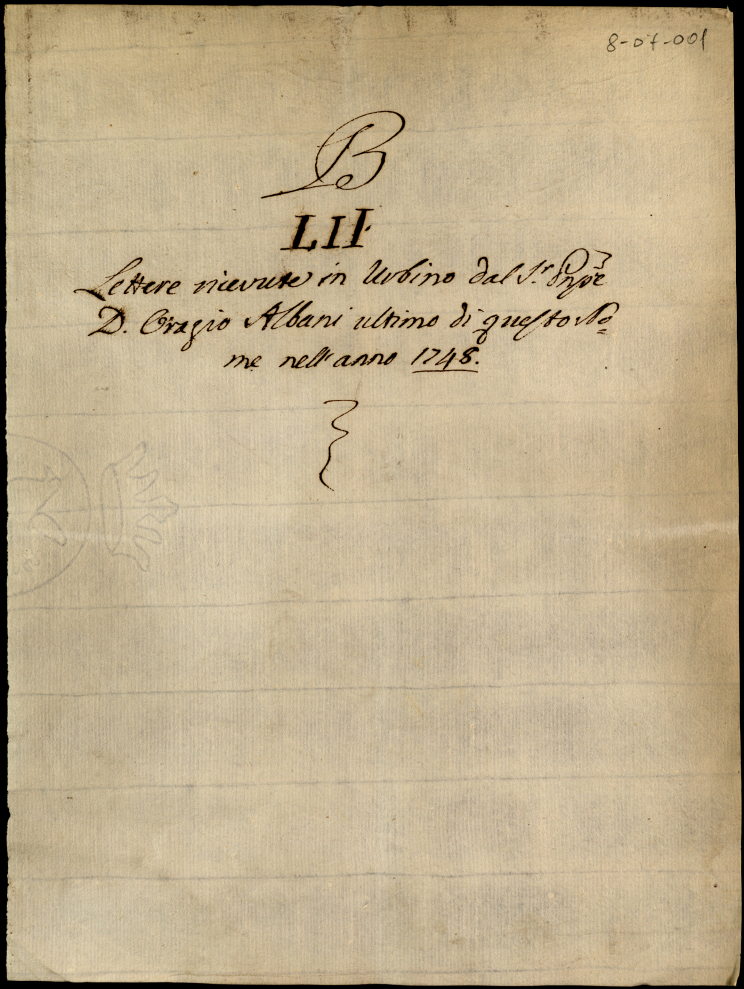 8-07-001
B
LII.
Lettere ricevute in Urbino dal S.r Pnpe
D. Orazio Albani ultimo di questo No=
me nell'anno 1748.